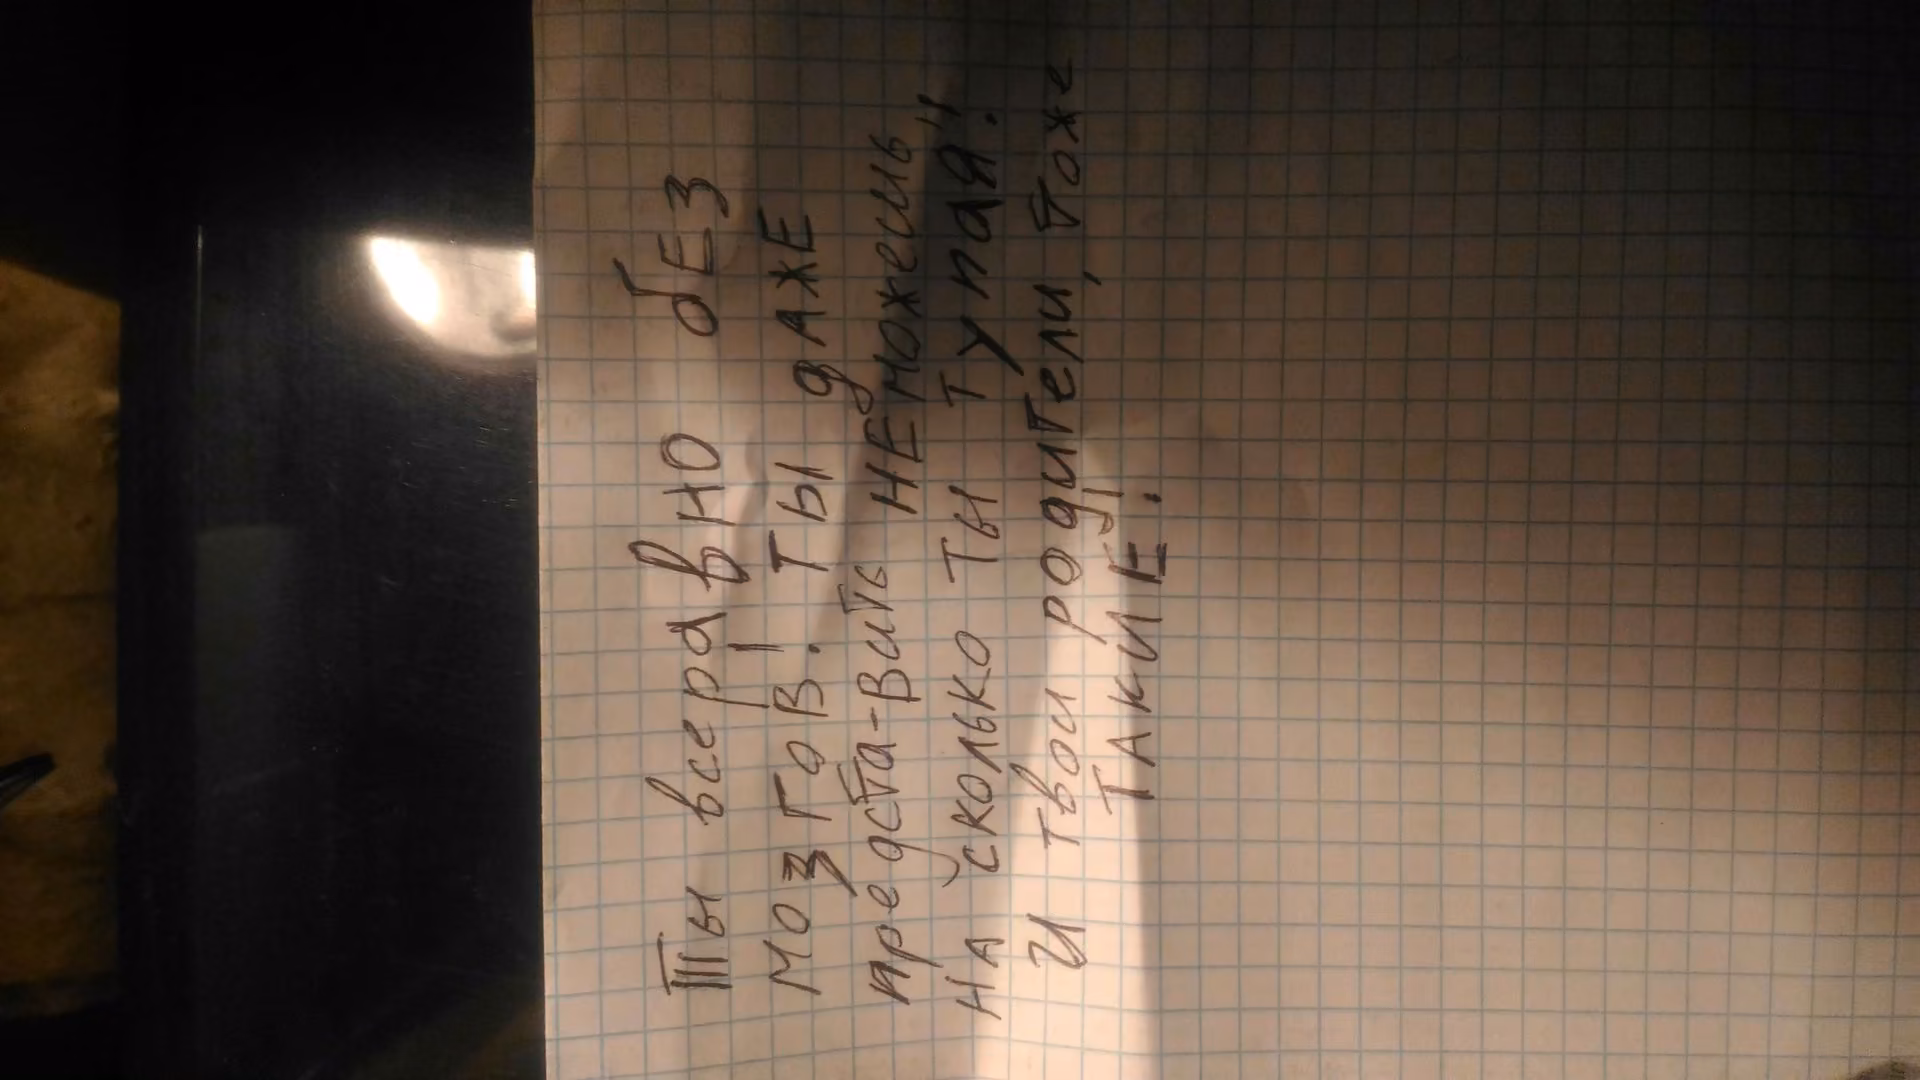 Ты всеравно бЕЗ
МОЗГОВ! ТЫ дАЖЕ
предста-Вить НЕможешь
НА сколько Ты Тупая!!
И твои родители, тоже
ТАКИЕ.